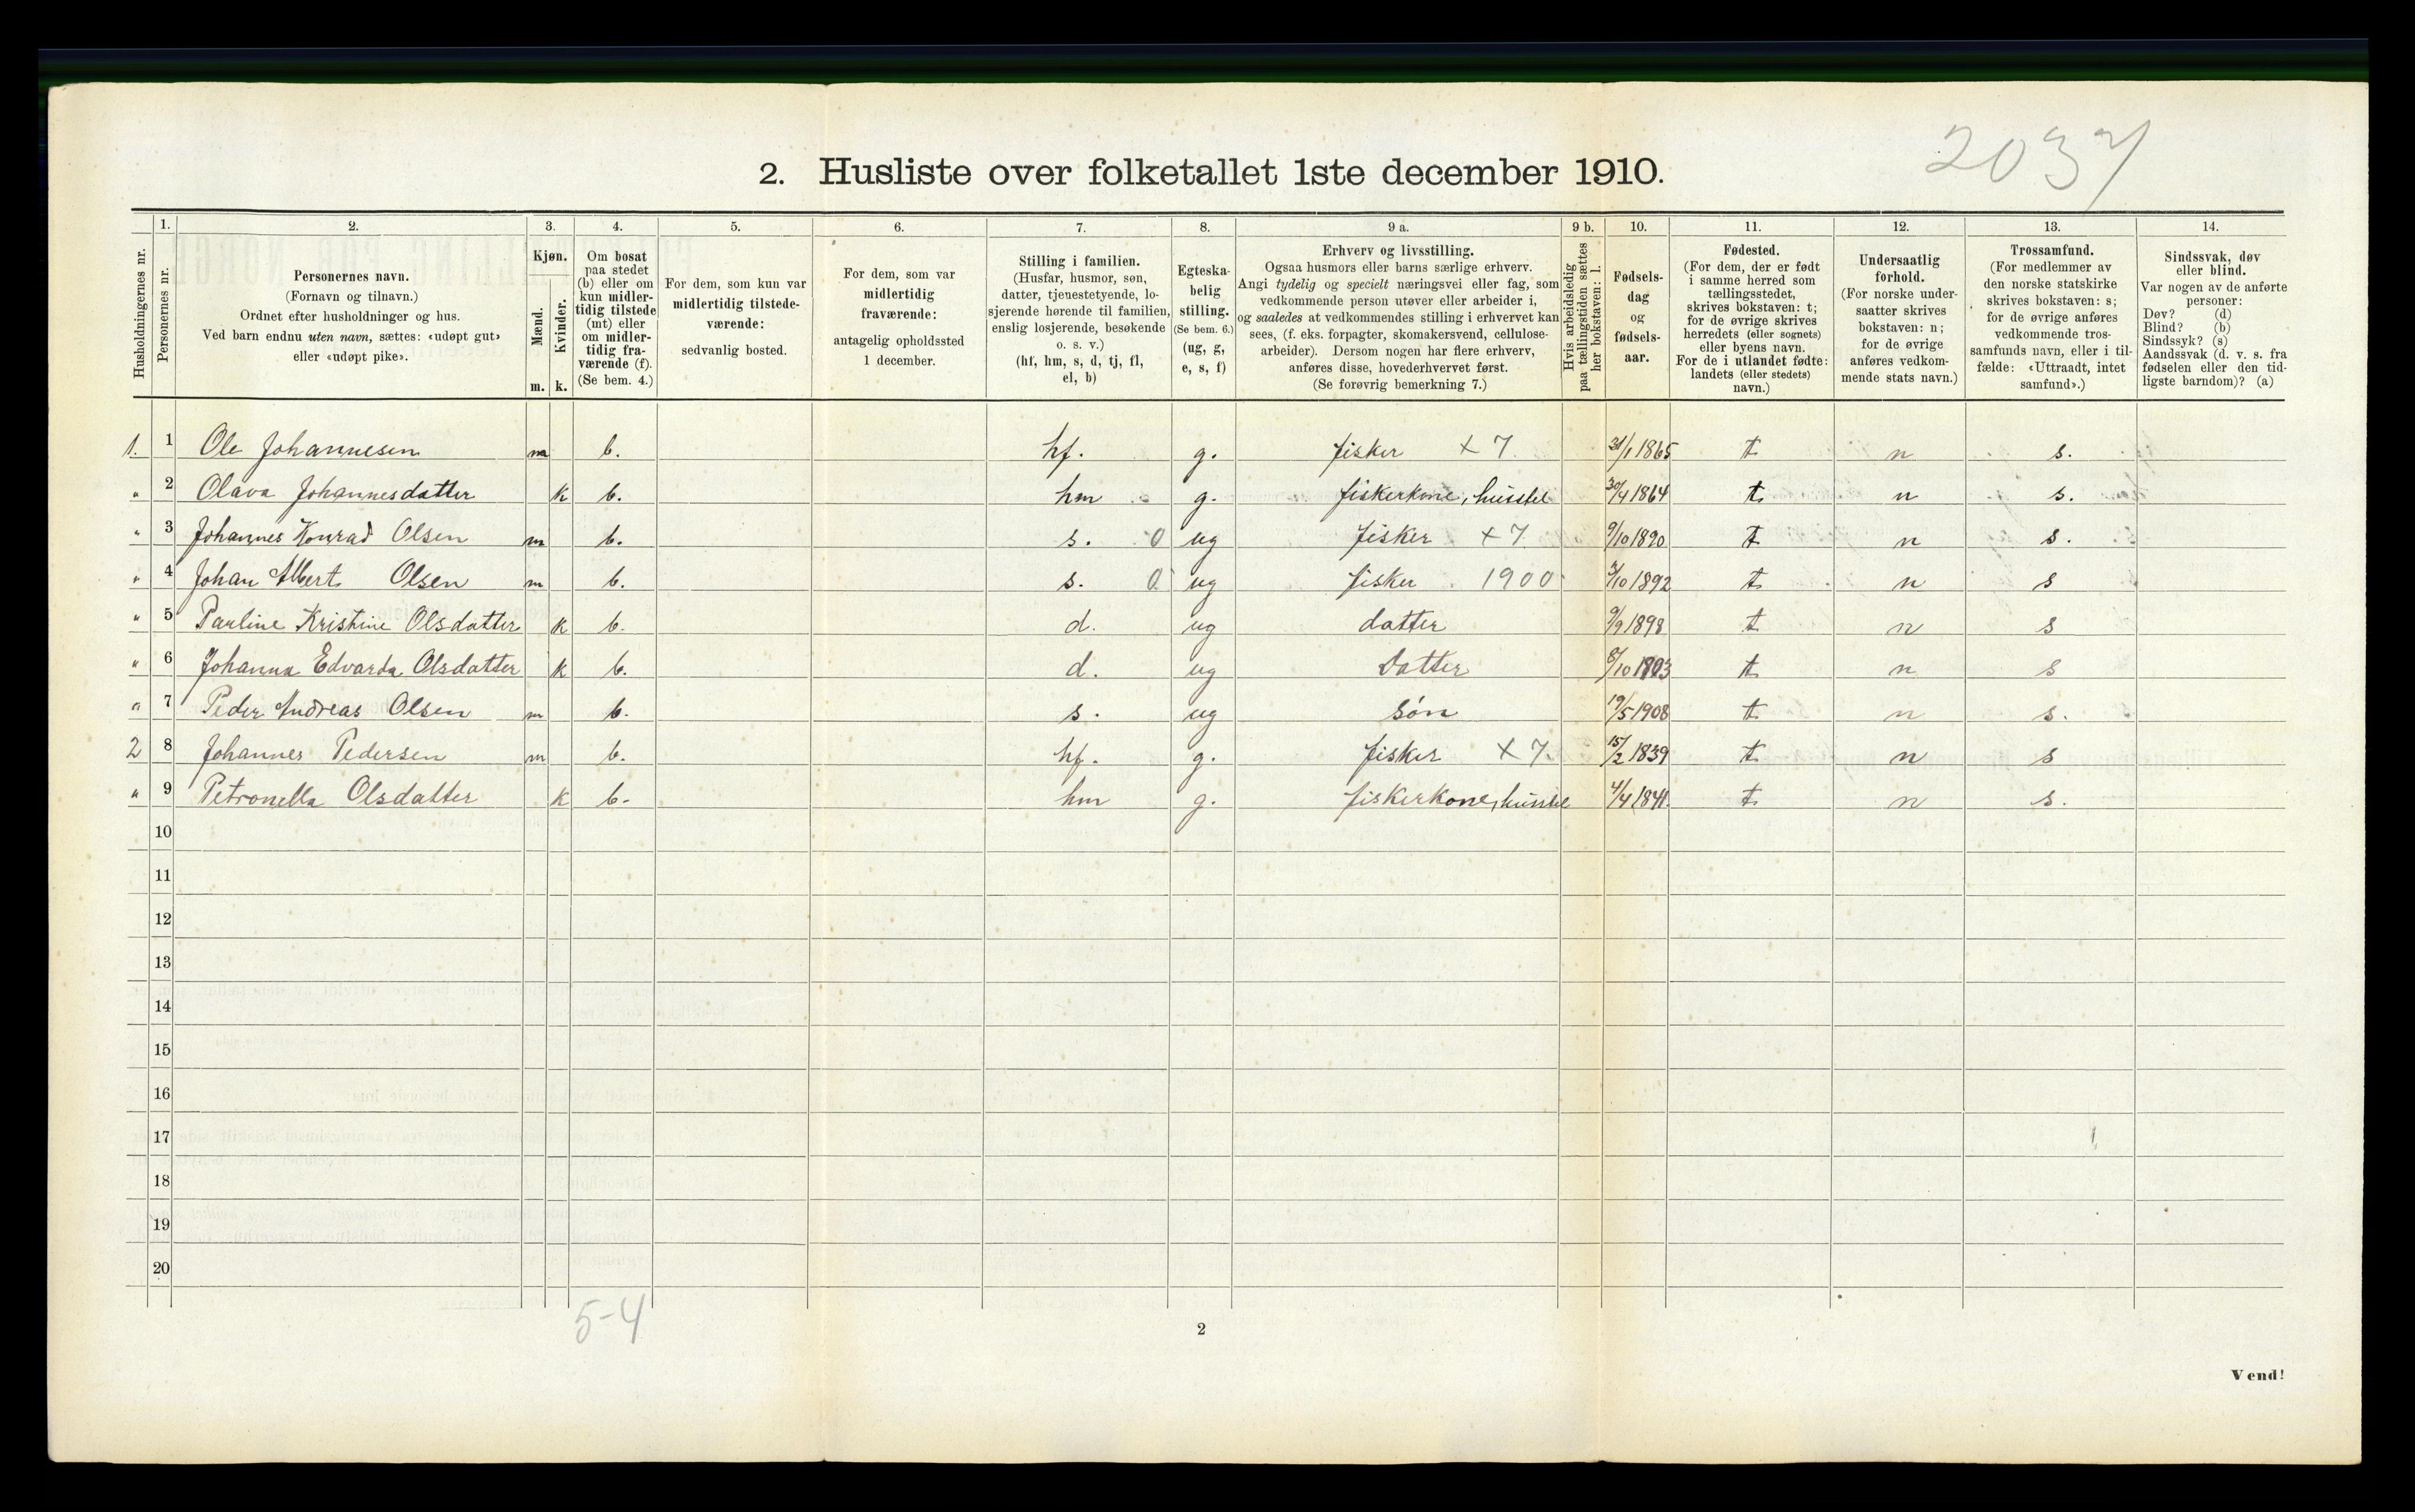 2037
2. Husliste over folketallet 1ste december 1910.
Husholdningernes nr.
1.
Personernes nr.
2.
Personernes navn.
(Fornavn og tilnavn.)
Ordnet efter husholdninger og hus.
Ved barn endnu uten navn, sættes: «udøpt gut»
eller «udøpt pike».
3.
Kjøn.
Mænd.
m.
Kvinder.
k.
4.
Om bosat
paa stedet
(b) eller om
kun midler-
tidig tilstede
(mt) eller
om midler-
tidig fra-
værende (f).
(Se bem. 4.)
5.
For dem, som kun var
midlertidig tilstede-
værende:
sedvanlig bosted.
6.
For dem, som var
midlertidig
fraværende:
antagelig opholdssted
1 december.
7.
Stilling i familien.
(Husfar, husmor, søn,
datter, tjenestetyende, lo-
sjerende hørende til familien,
enslig losjerende, besøkende
o. s. v.)
(hf, hm, s, d, tj, fl,
el, b)
8.
Egteska-
belig
stilling.
(Se bem. 6.)
(ug, g,
e, s, f)
9 a.
Erhverv og livsstilling.
Ogsaa husmors eller barns særlige erhverv.
Angi tydelig og specielt næringsvei eller fag, som
vedkommende person utøver eller arbeider i,
og saaledes at vedkommendes stilling i erhvervet kan
sees, (f. eks. forpagter, skomakersvend, cellulose-
arbeider). Dersom nogen har flere erhverv,
anføres disse, hovederhvervet først.
(Se forøvrig bemerkning 7.)
9 b.
Hvis arbeidsledig
paa tællingstiden sættes
her bokstaven: l.
10.
Fødsels-
dag
og
fødsels-
aar.
11.
Fødested.
(For dem, der er født
i samme herred som
tællingsstedet,
skrives bokstaven: t;
for de øvrige skrives
herredets (eller sognets)
eller byens navn.
For de i utlandet fødte:
landets (eller stedets)
navn.)
12.
Undersaatlig
forhold.
(For norske under-
saatter skrives
bokstaven: n;
for de øvrige
anføres vedkom-
mende stats navn.)
13.
Trossamfund.
(For medlemmer av
den norske statskirke
skrives bokstaven: s;
for de øvrige anføres
vedkommende tros-
samfunds navn, eller i til-
fælde: «Uttraadt, intet
samfund».)
14.
Sindssvak, døv
eller blind.
Var nogen av de anførte
personer:
Døv? (d)
Blind? (b)
Sindssyk? (s)
Aandssvak (d. v. s. fra
fødselen eller den tid-
ligste barndom)? (a)
1. 1 Ole Johannesen m b. hf. g. fisker +7 1865 t n s.
" 2 Olava Johannesdatter k b. hm g. fiskerkone, husstel 30/4 1864 t n s.
" 3 Johannes Konrad Olsen m b. s. 0 ug fisker +7 9/10 1890 t n s.
" 4 Johan Albert Olsen m b. s. 0 ug fisker 1900 3/10 1892 t n s
" 5 Pauline Kristine Olsdatter k b. d. ug datter 9/9 1898 t n s
" 6 Johanna Edvarda Olsdatter k b. d. ug Datter 8/10 t n s
" 7 Peder Andreas Olsen m b. s. ug søn 19/5 1908 t n s.
2 8 Johannes Pedersen m b. hf. g. fisker +7. 15/2 1839 t n s
" 9 Petronella Olsdatter k b. hm g. fiskerkone, husstel 4/4 1841. t n s.
10
11
12
13
14
15
16
17
18
19
20
5-4
2
Vend!